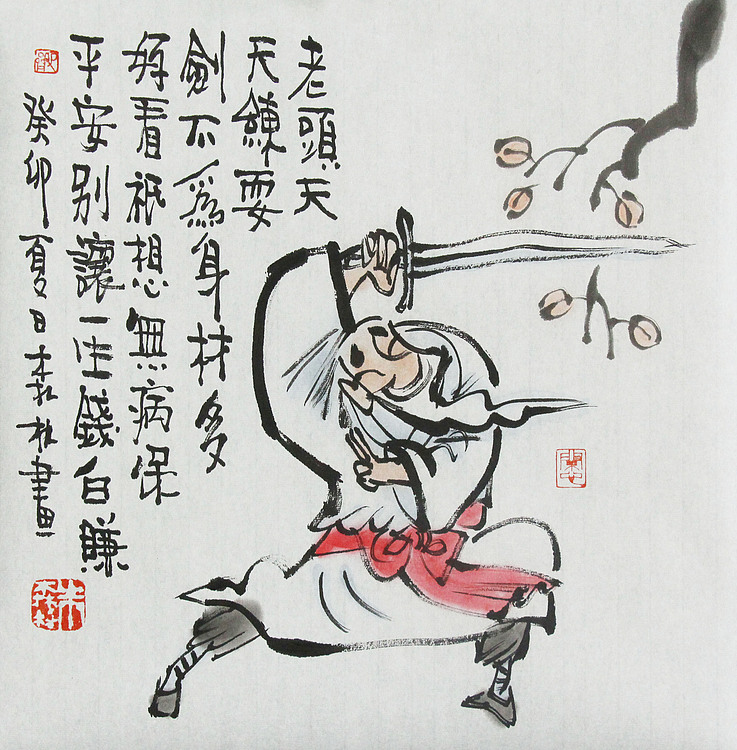 老頭天
天練耍
劍不爲身材多
好看祇想無病保
平安別讓一生錢白賺
癸卯夏日森林畫